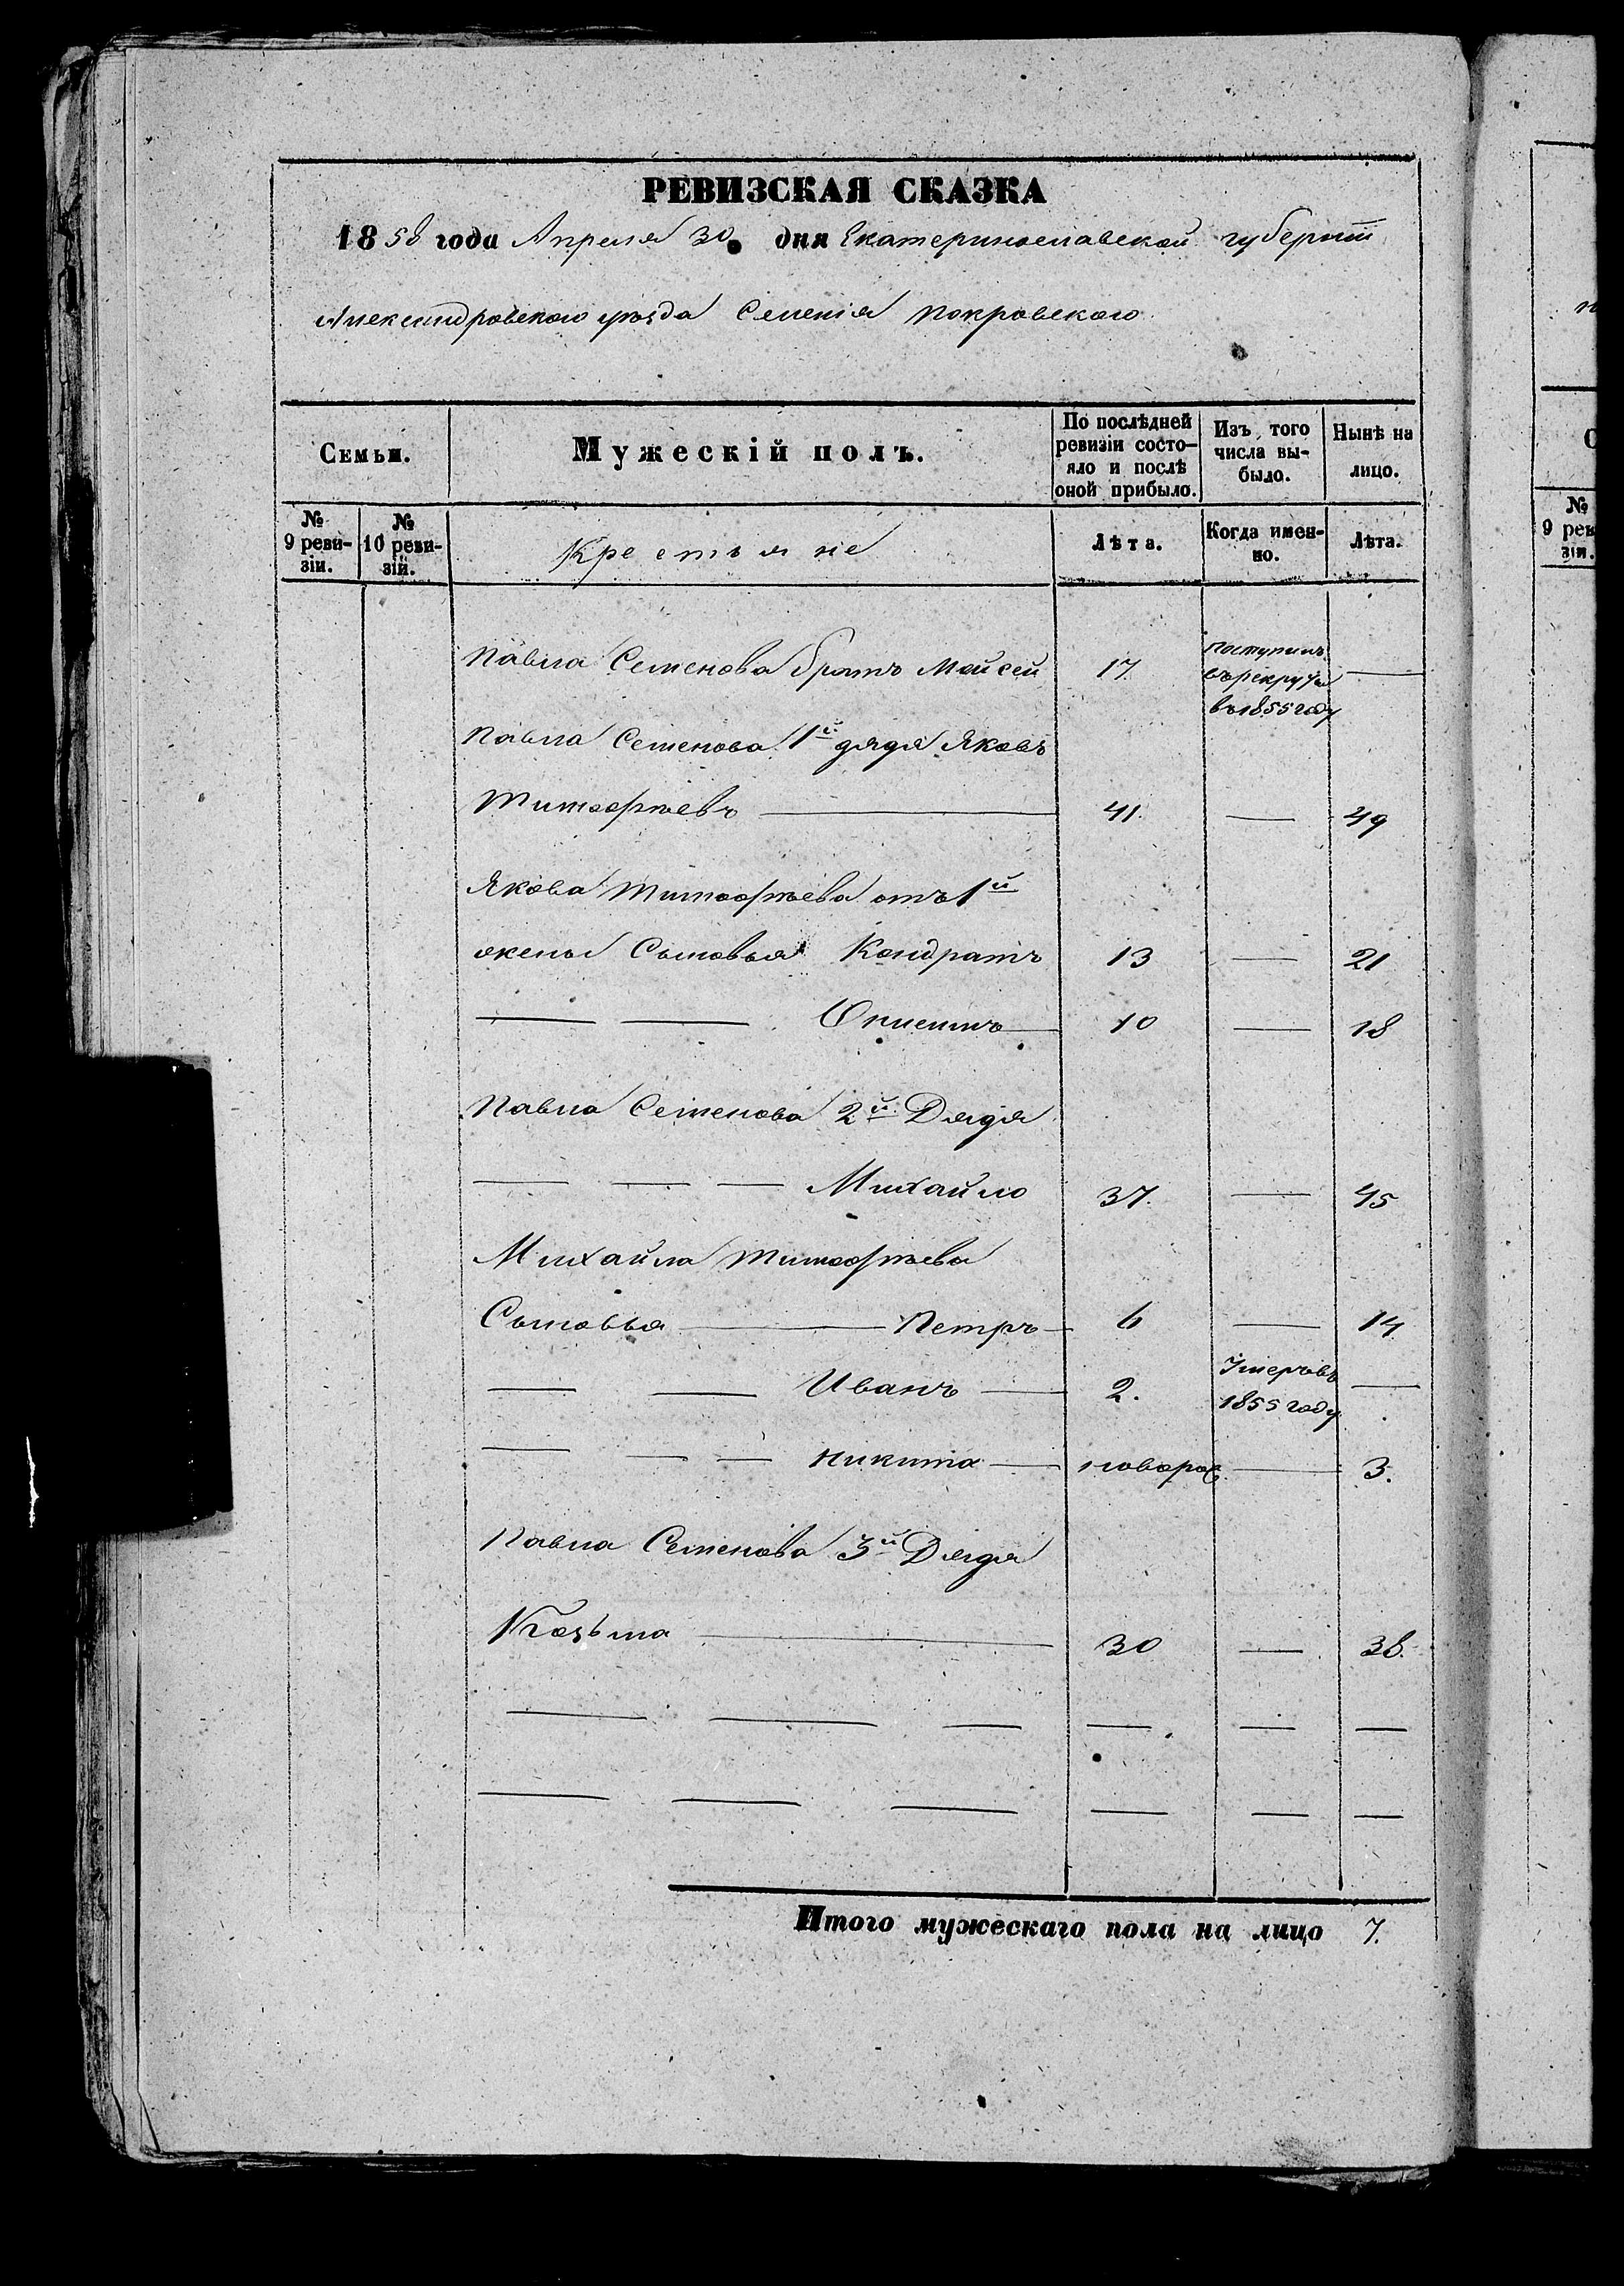 РЕВИЗСКАЯ СКАЗКА
1858 года Апреля 30 дня Екатеринославской губерніи
Александровского уѣзда Селенія Покровского
Семьи.
Мужескій полъ.
По послѣдней ревизіи состо-
яло и послѣ
оной прибыло.
Изъ того
числа вы-
было.
Нынѣ на
лицо.
№
9 реви-
зіи.
№
10 реви-
зіи.
Крестьяне
Лѣта.
Когда имен-
но.
Лѣта.
Павла Семенова братъ Мойсей 17. поступилъ
въ рекруты —
въ 1855 году
Павла Семенова 1й дядя Яковъ
Тимофѣевъ — 41. — 49
Якова Тимофѣева отъ 1й
жены Сыновья Кондратъ 13 — 21
— — 10 — 18
Павла Семенова 2й Дядя
— — — Михайло 37. — 45
Михайла Тимофѣева
Сыновья — Петръ — 6 — 14
— — Иванъ — 2. Умеръ въ
1855 году —
— — — Никита — новорож — 3.
Павла Семенова 3й Дядя
Козьма — 30 — 38.
Итого мужескаго пола на лицо 7.
№
9 рев
зіи.